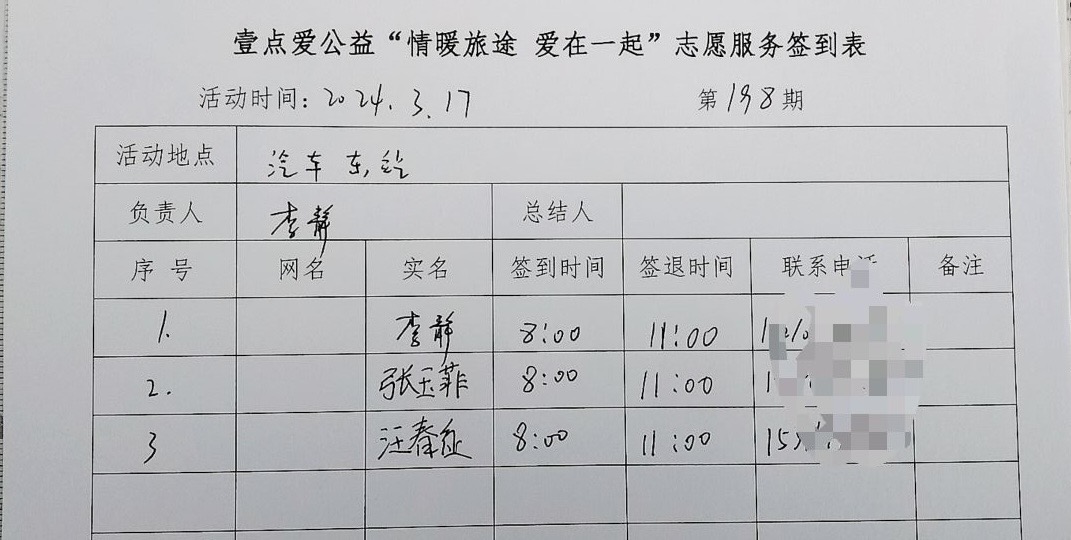 壹点爱公益“情暖旅途 爱在一起”志愿服务签到表
活动时间：2024.3.17 第198期
活动地点 汽车东站
负责人 李静 总结人
序号 网名 实名 签到时间 签退时间 联系电话 备注
1. 李静 8:00 11:00
2. 张玉菲 8:00 11:00
3 汪春 8:00 11:00 15